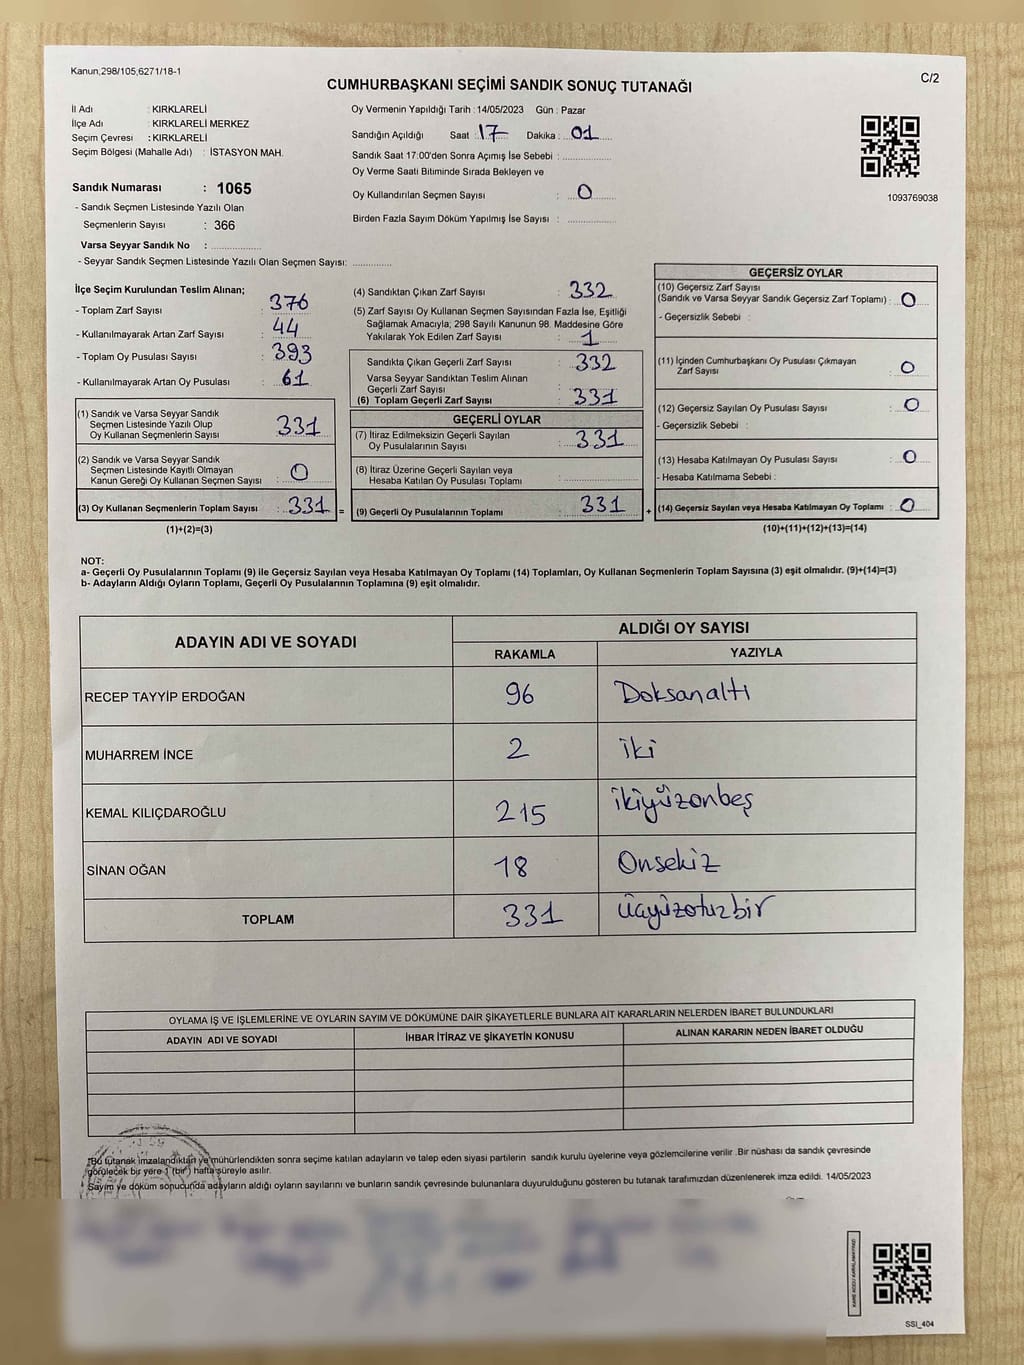 Kanun,298/105,6271/18-1
C/2
CUMHURBAŞKANI SEÇİMİ SANDIK SONUÇ TUTANAĞI
İl Adı : KIRKLARELİ
İlçe Adı : KIRKLARELİ MERKEZ
Seçim Çevresi : KIRKLARELİ
Seçim Bölgesi (Mahalle Adı) : İSTASYON MAH.
Sandık Numarası : 1065
- Sandık Seçmen Listesinde Yazılı Olan
Seçmenlerin Sayısı : 366
Varsa Seyyar Sandık No :
- Seyyar Sandık Seçmen Listesinde Yazılı Olan Seçmen Sayısı:
Oy Vermenin Yapıldığı Tarih : 14/05/2023 Gün : Pazar
Sandığın Açıldığı Saat : 17 Dakika : 01
Sandık Saat 17:00'den Sonra Açımış İse Sebebi :
Oy Verme Saati Bitiminde Sırada Bekleyen ve
Oy Kullandırılan Seçmen Sayısı : 0
Birden Fazla Sayım Döküm Yapılmış İse Sayısı :
1093769038
İlçe Seçim Kurulundan Teslim Alınan;
- Toplam Zarf Sayısı : 376
- Kullanılmayarak Artan Zarf Sayısı : 44
- Toplam Oy Pusulası Sayısı : 393
- Kullanılmayarak Artan Oy Pusulası : 61
(1) Sandık ve Varsa Seyyar Sandık
Seçmen Listesinde Yazılı Olup
Oy Kullanan Seçmenlerin Sayısı : 331
(2) Sandık ve Varsa Seyyar Sandık
Seçmen Listesinde Kayıtlı Olmayan
Kanun Gereği Oy Kullanan Seçmen Sayısı : 0
(3) Oy Kullanan Seçmenlerin Toplam Sayısı : 331 =
(1)+(2)=(3)
(4) Sandıktan Çıkan Zarf Sayısı : 332
(5) Zarf Sayısı Oy Kullanan Seçmen Sayısından Fazla İse, Eşitliği
Sağlamak Amacıyla; 298 Sayılı Kanunun 98. Maddesine Göre
Yakılarak Yok Edilen Zarf Sayısı : 1
Sandıkta Çıkan Geçerli Zarf Sayısı : 332
Varsa Seyyar Sandıktan Teslim Alınan
Geçerli Zarf Sayısı :
(6) Toplam Geçerli Zarf Sayısı : 331
GEÇERLİ OYLAR
(7) İtiraz Edilmeksizin Geçerli Sayılan
Oy Pusulalarının Sayısı : 331
(8) İtiraz Üzerine Geçerli Sayılan veya
Hesaba Katılan Oy Pusulası Toplamı :
(9) Geçerli Oy Pusulalarının Toplamı : 331 +
GEÇERSİZ OYLAR
(10) Geçersiz Zarf Sayısı
(Sandık ve Varsa Seyyar Sandık Geçersiz Zarf Toplamı) : 0
- Geçersizlik Sebebi :
(11) İçinden Cumhurbaşkanı Oy Pusulası Çıkmayan
Zarf Sayısı : 0
(12) Geçersiz Sayılan Oy Pusulası Sayısı : 0
- Geçersizlik Sebebi :
(13) Hesaba Katılmayan Oy Pusulası Sayısı : 0
- Hesaba Katılmama Sebebi :
(14) Geçersiz Sayılan veya Hesaba Katılmayan Oy Toplamı : 0
(10)+(11)+(12)+(13)=(14)
NOT:
a- Geçerli Oy Pusulalarının Toplamı (9) ile Geçersiz Sayılan veya Hesaba Katılmayan Oy Toplamı (14) Toplamları, Oy Kullanan Seçmenlerin Toplam Sayısına (3) eşit olmalıdır. (9)+(14)=(3)
b- Adayların Aldığı Oyların Toplamı, Geçerli Oy Pusulalarının Toplamına (9) eşit olmalıdır.
ADAYIN ADI VE SOYADI
ALDIĞI OY SAYISI
RAKAMLA YAZIYLA
RECEP TAYYİP ERDOĞAN 96 Doksanaltı
MUHARREM İNCE 2 iki
KEMAL KILIÇDAROĞLU 215 ikiyüzonbeş
SİNAN OĞAN 18 Onsekiz
TOPLAM 331 üçyüzotuzbir
OYLAMA İŞ VE İŞLEMLERİNE VE OYLARIN SAYIM VE DÖKÜMÜNE DAİR ŞİKAYETLERLE BUNLARA AİT KARARLARIN NELERDEN İBARET BULUNDUKLARI
ADAYIN ADI VE SOYADI İHBAR İTİRAZ VE ŞİKAYETİN KONUSU ALINAN KARARIN NEDEN İBARET OLDUĞU
*Bu tutanak imzalandıktan ve mühürlendikten sonra seçime katılan adayların ve talep eden siyasi partilerin sandık kurulu üyelerine veya gözlemcilerine verilir .Bir nüshası da sandık çevresinde
görülecek bir yere 1 (bir) hafta süreyle asılır.
Sayım ve döküm sonucunda adayların aldığı oyların sayılarını ve bunların sandık çevresinde bulunanlara duyurulduğunu gösteren bu tutanak tarafımızdan düzenlenerek imza edildi. 14/05/2023
KARE KODU KARALAMAYINIZ!
SSI_404